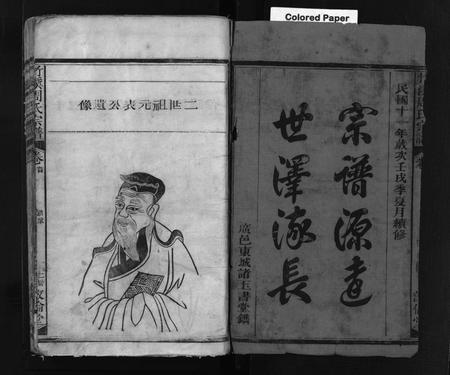 Colored Paper
民國十一年歲次壬戌季夏月續修
宗譜源遠
世澤流長
廣邑東城諸玉書堂鐫
二世祖元表公遺像